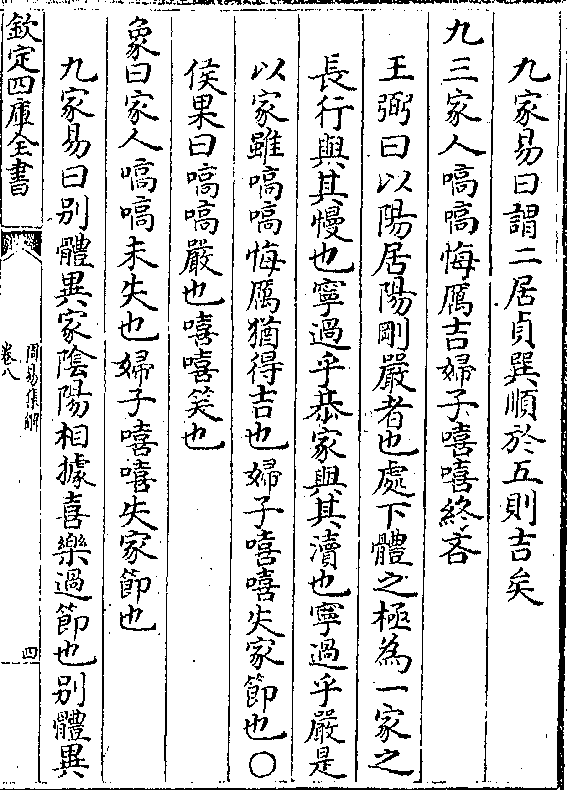 九家易曰謂二居貞巽順於五則吉矣
九三家人嗃嗃悔厲吉婦子嘻嘻終吝
王弼曰以陽居陽剛嚴者也處下體之極為一家之
長行與其慢也寧過乎恭家與其瀆也寧過乎嚴是
以家雖嗃嗃悔厲猶得吉也婦子嘻嘻失家節也〇
侯果曰嗃嗃嚴也嘻嘻笑也
象曰家人嗃嗃未失也婦子嘻嘻失家節也
九家易曰别體異家陰陽相據喜樂過節也别體異
欽定四庫全書
周易集解
卷八
四